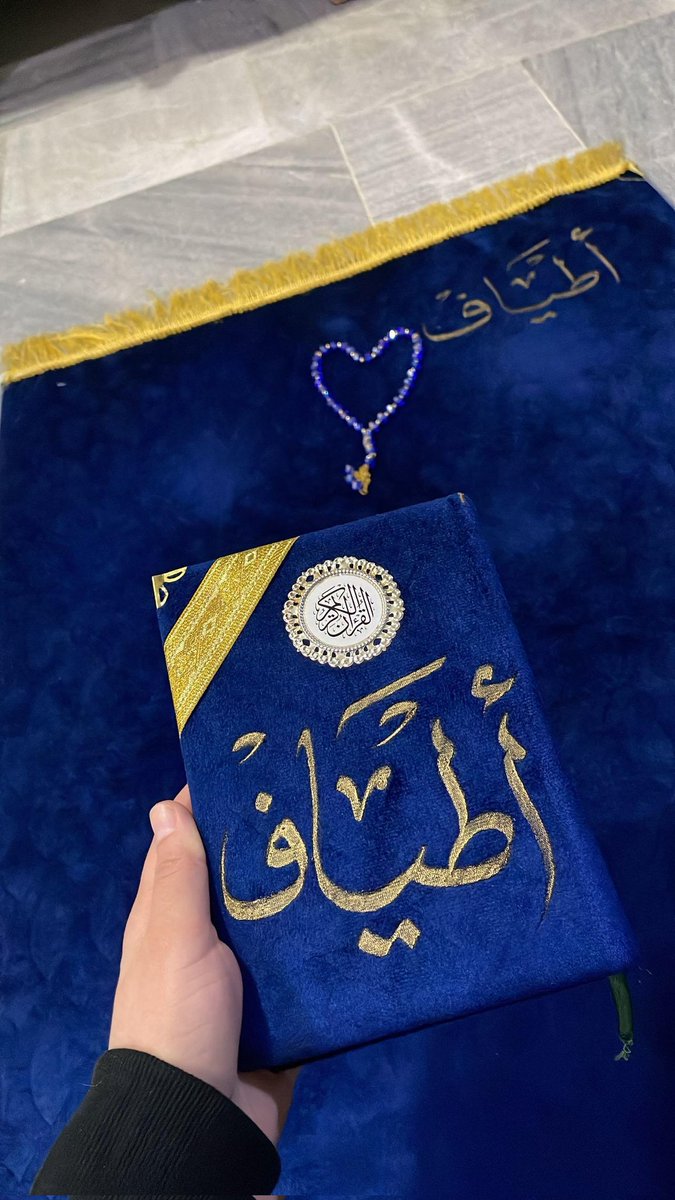 أطياف
القرآن الكريم
أطياف